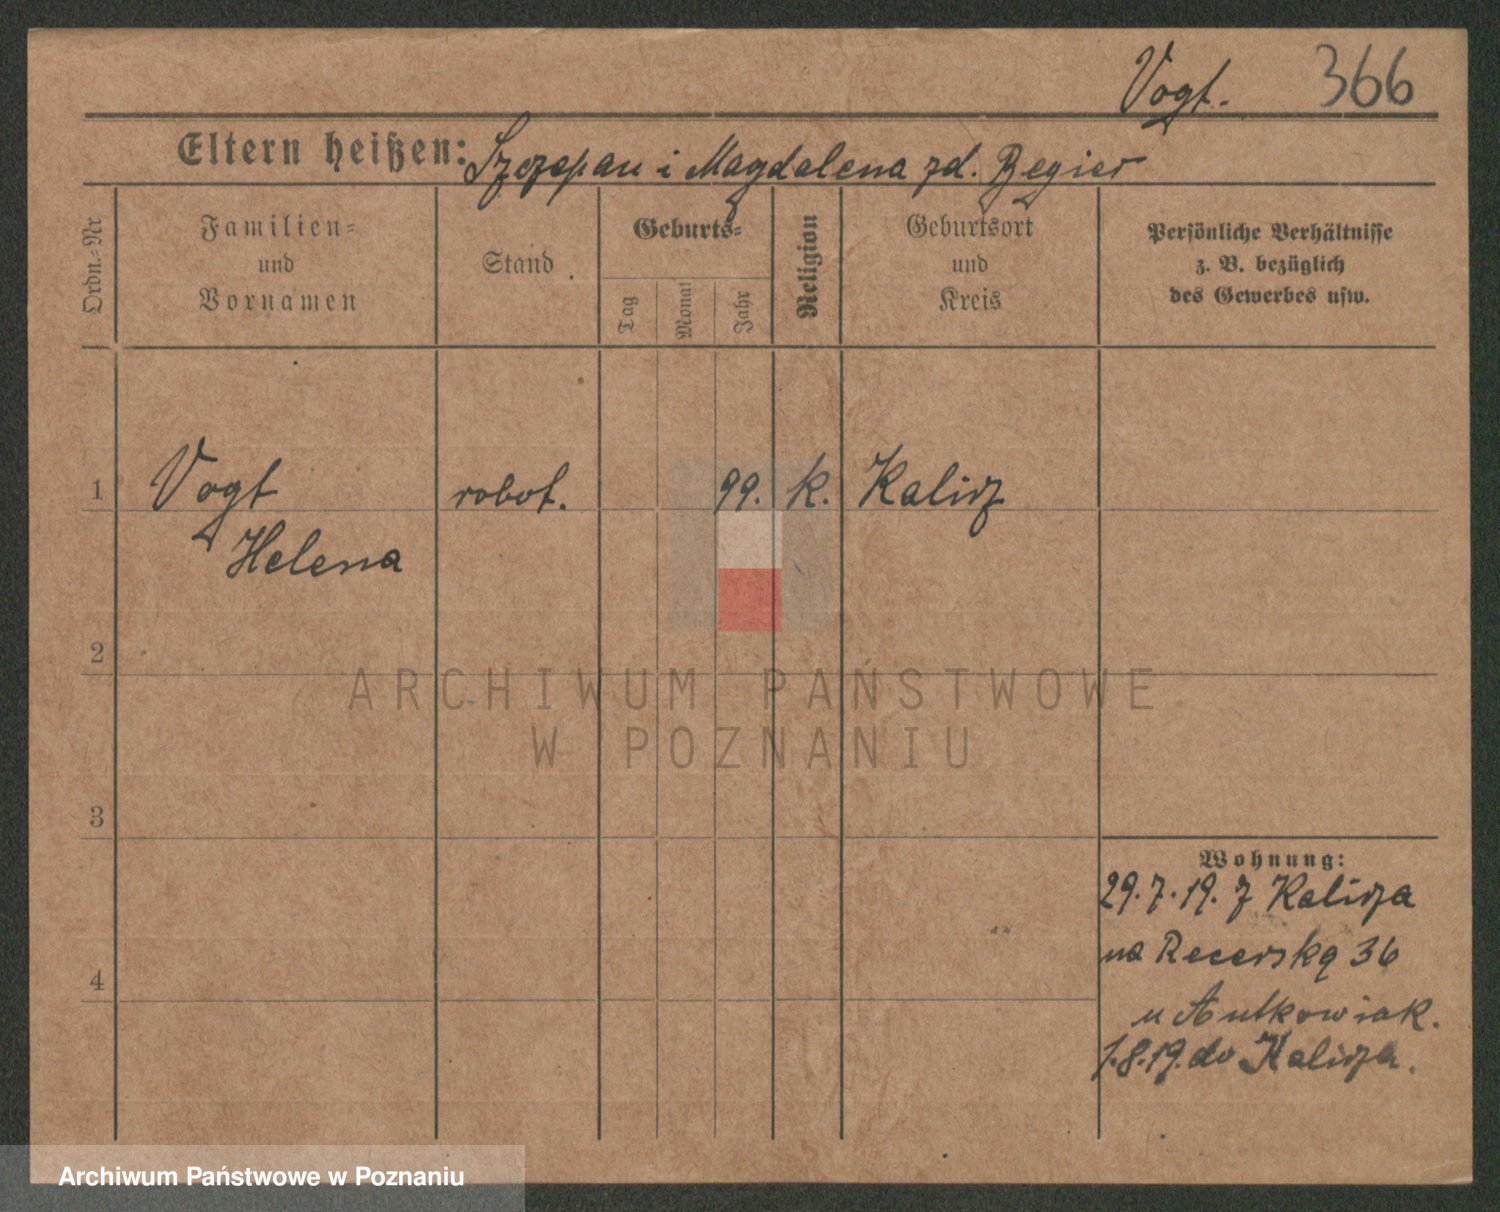 Vogt. 366
Eltern heißen: Szczepan i Magdalena zd. Regier
Ordn.-Nr
Familien-
und
Vornamen
Stand
Geburts-
Tag
Monat
Jahr
Religion
Geburtsort
und
Kreis
Persönliche Verhältnisse
z. B. bezüglich
des Gewerbes usw.
1 Vogt robot. 99. k. Kalisz
Helena
2
3
4
Wohnung:
29.7.19. z Kalisza
na 36
u Antkowiak.
1.8.19. do Kalisza.
ARCHIWUM PAŃSTWOWE
W POZNANIU
Archiwum Państwowe w Poznaniu